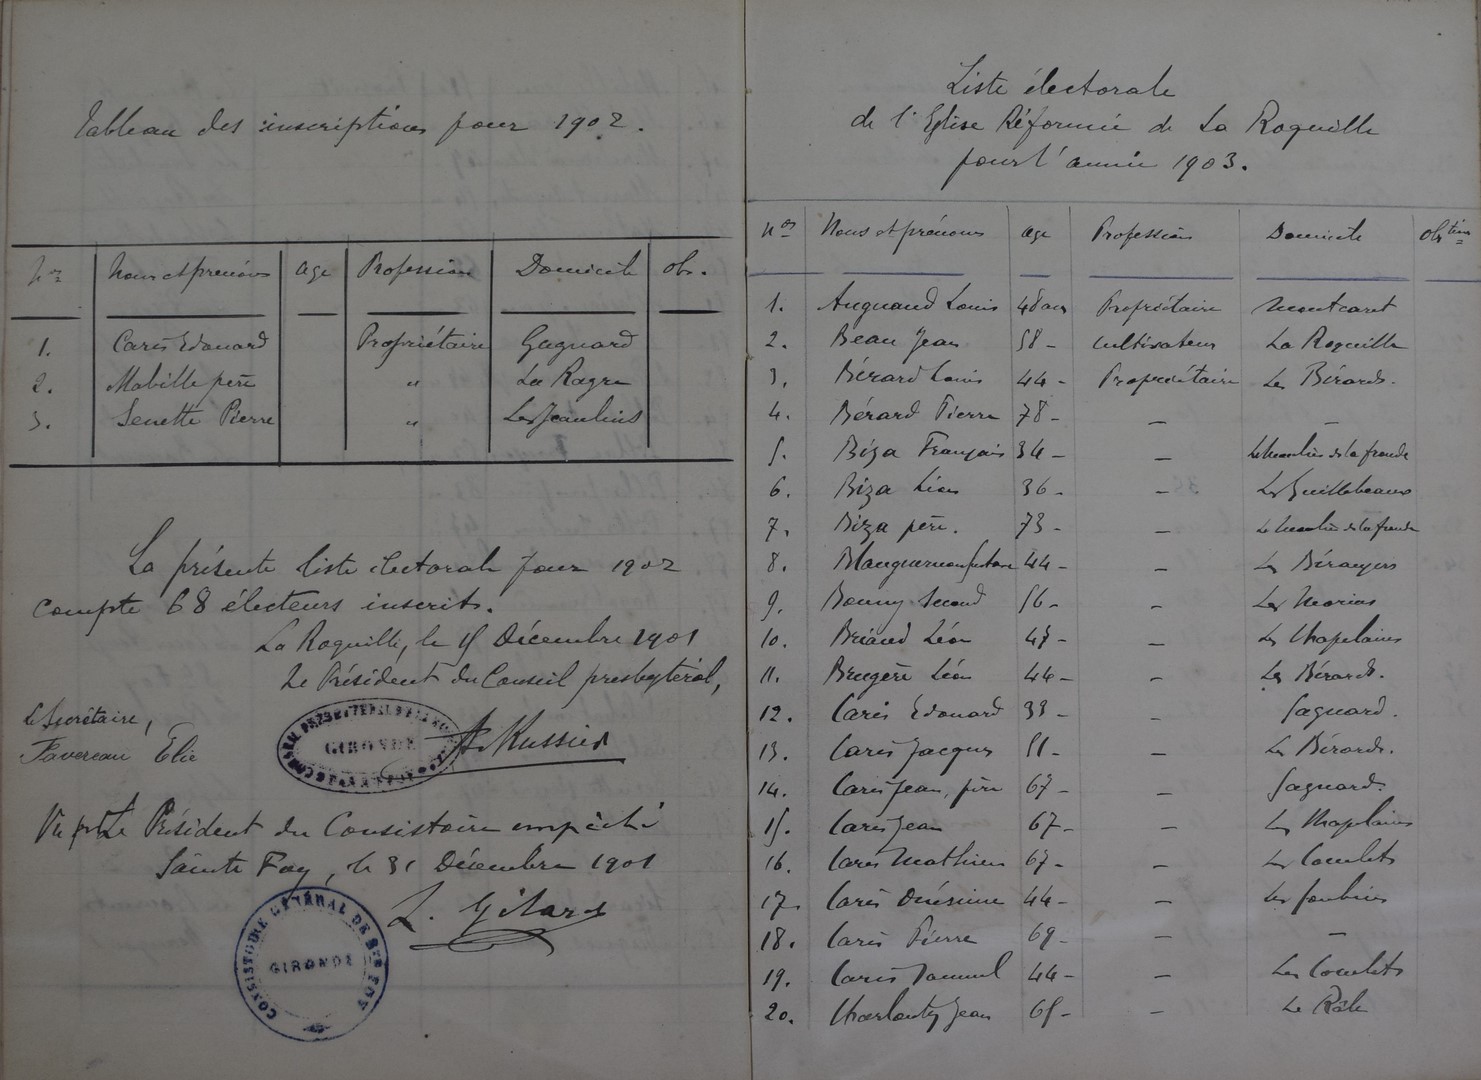 Tableau des inscriptions pour 1902.
Nos Noms et prénoms age Profession Domicile obs.
1. Carès Edouard Propriétaire Gagnard
2. Mabille père " La Ragre
3. Senette Pierre " Les Jeaulins
La présente liste électorale pour 1902
compte 68 électeurs inscrits.
La Roquille, le 15 Décembre 1901
Le Président du Conseil presbytéral,
Le Secrétaire,
Favereau Elie
GIRONDE
Vu pr Le Président du Consistoire empêché
Sainte Foy, le 31 Décembre 1901
CONSISTOIRE GÉNÉRAL DE STE FOY
GIRONDE
Liste électorale
de l'Eglise Réformée de La Roquille
pour l'année 1903.
Nos Noms et prénoms age Profession Domicile Obstions
1. Auguand Louis 48 ans Propriétaire Montcaret
2. Beau Jean 58 - cultivateur La Roquille
3. Bérard Louis 44 - Propriétaire Les Bérards.
4. Bérard Pierre 78 - - -
5. Biza François 34 - -
6. Biza Léon 36 - - Les Guillebeaux
7. Biza père. 73 - -
8. 44 - - Les Bérangers
9. Bonny Second 56 - - Les Morins
10. Briand Léon 47 - - Les Chapelains
11. Brugère Léon 44 - - Les Bérards.
12. Carès Edouard 33 - - Gagnard.
13. Carès Jacques 51 - - Les Bérards.
14. Carès Jean, père 67 - - Gagnard.
15. Carès Jean 67 - - Les Chapelains
16. Carès Mathieu 67 - - Les Comlets
17. Carès Onésime 44 - -
18. Carès Pierre 69 - - -
19. Carès Samuel 44 - - Les Comlets
20. Jean 65 - -